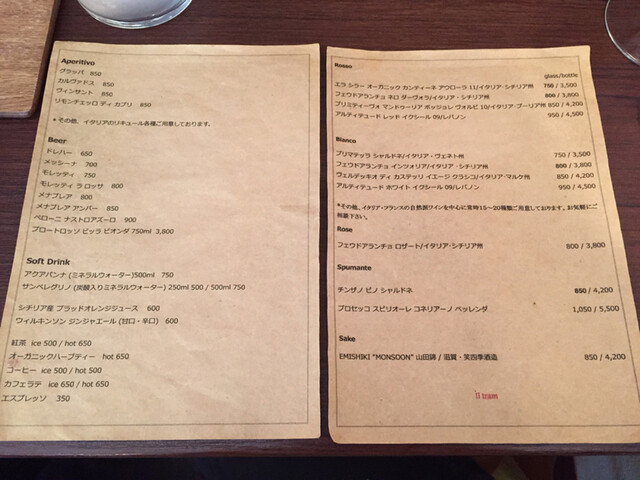 Aperitivo
グラッパ 850
カルヴァドス 650
ヴィンサント 850
リモンチェッロ ディ カプリ 850
*その他、イタリアのリキュール各種ご用意しております。
Beer
ドレハー 650
メッシーナ 700
モレッティ 750
モレッティ ラ ロッサ 800
メナブレア 800
メナブレア アンバー 850
ペローニ ナストロアズーロ 900
ブロートロッソ ピッラ ビオンダ 750ml 3,800
Soft Drink
アクアパンナ (ミネラルウォーター)500ml 750
サンペレグリノ (炭酸入りミネラルウォーター) 250ml 500 / 500ml 750
シチリア産 ブラッドオレンジジュース 600
ウィルキンソン ジンジャエール (甘口・辛口) 600
紅茶 ice 500 / hot 650
オーガニックハーブティー hot 650
コーヒー ice 500 / hot 500
カフェラテ ice 650 / hot 650
エスプレッソ 350
Rosso
glass/bottle
エラ シラー オーガニック カンティーネ アウローラ 11/イタリア·シチリア州 750 / 3,500
フェウドアランチョ ネロ ダーヴォラ/イタリア・シチリア州 800 / 3,800
プリミティーヴォ マンドゥーリア ポッジョレ ヴォルピ 10/イタリア·プーリア州 850 / 4,200
アルティテュード レッド イクシール 09/レバノン 950 / 4,500
Bianco
プリマテッラ シャルドネ/イタリア・ヴェネト州 750 / 3,500
フェウドアランチョ インツォリア/イタリア・シチリア州 800 / 3,800
ヴェルデッキオ ディ カステッリ イエージ クラシコ/イタリア·マルケ州 850 / 4,200
アルティテュード ホワイト イクシール 09/レバノン 950 / 4,500
*その他、イタリア·フランスの自然派ワインを中心に常時15～20種類ご用意しております。お気軽にご
相談下さい。
Rose
フェウドアランチョ ロザート/イタリア·シチリア州 800 / 3,800
Spumante
チンザノ ピノ シャルドネ 850 / 4,200
プロセッコ スピリオーレ コネリアーノ ベッレンダ 1,050 / 5,500
Sake
EMISHIKI "MONSOON" 山田錦 / 滋賀・笑四季酒造 850 / 4,200
il team